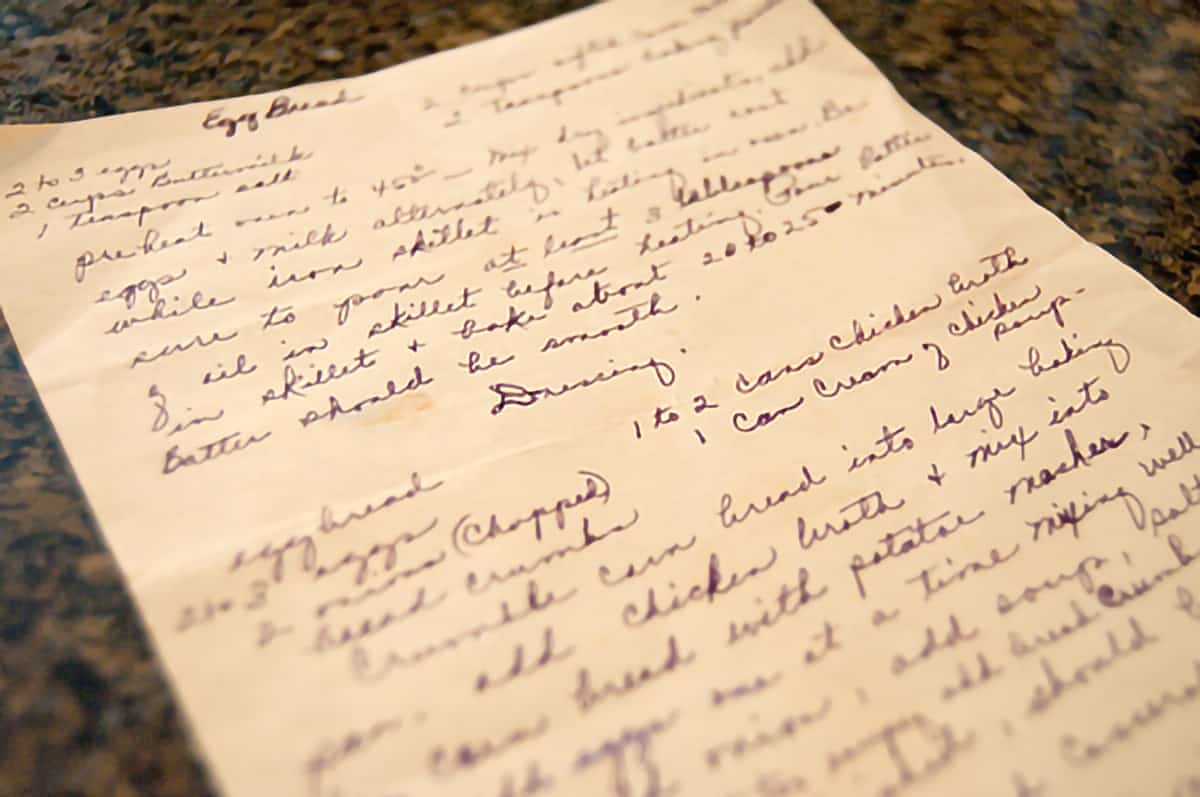 Egg Bread
2 to 3 eggs
2 cups Buttermilk
1 teaspoon salt
2 cups
2 teaspoons baking
preheat oven to 450° - Mix dry ingredients, add
eggs + milk alternately, let batter
while iron skillet is heating in oven. Be
sure to pour at least 3 tablespoons
of oil in skillet before heating. Pour batter
in skillet + bake about 20 to 25 minutes.
Batter should be smooth.
Dressing.
egg bread
2 to 3 eggs
2 onions (chopped)
bread crumbs
1 to 2 cans chicken broth
1 can cream of chicken
soup.
Crumble corn bread into large baking
pan. add chicken broth + mix into
corn bread with potatoe masher,
eggs one at a time mixing well
onion, add soup, salt
add bread crumb
should